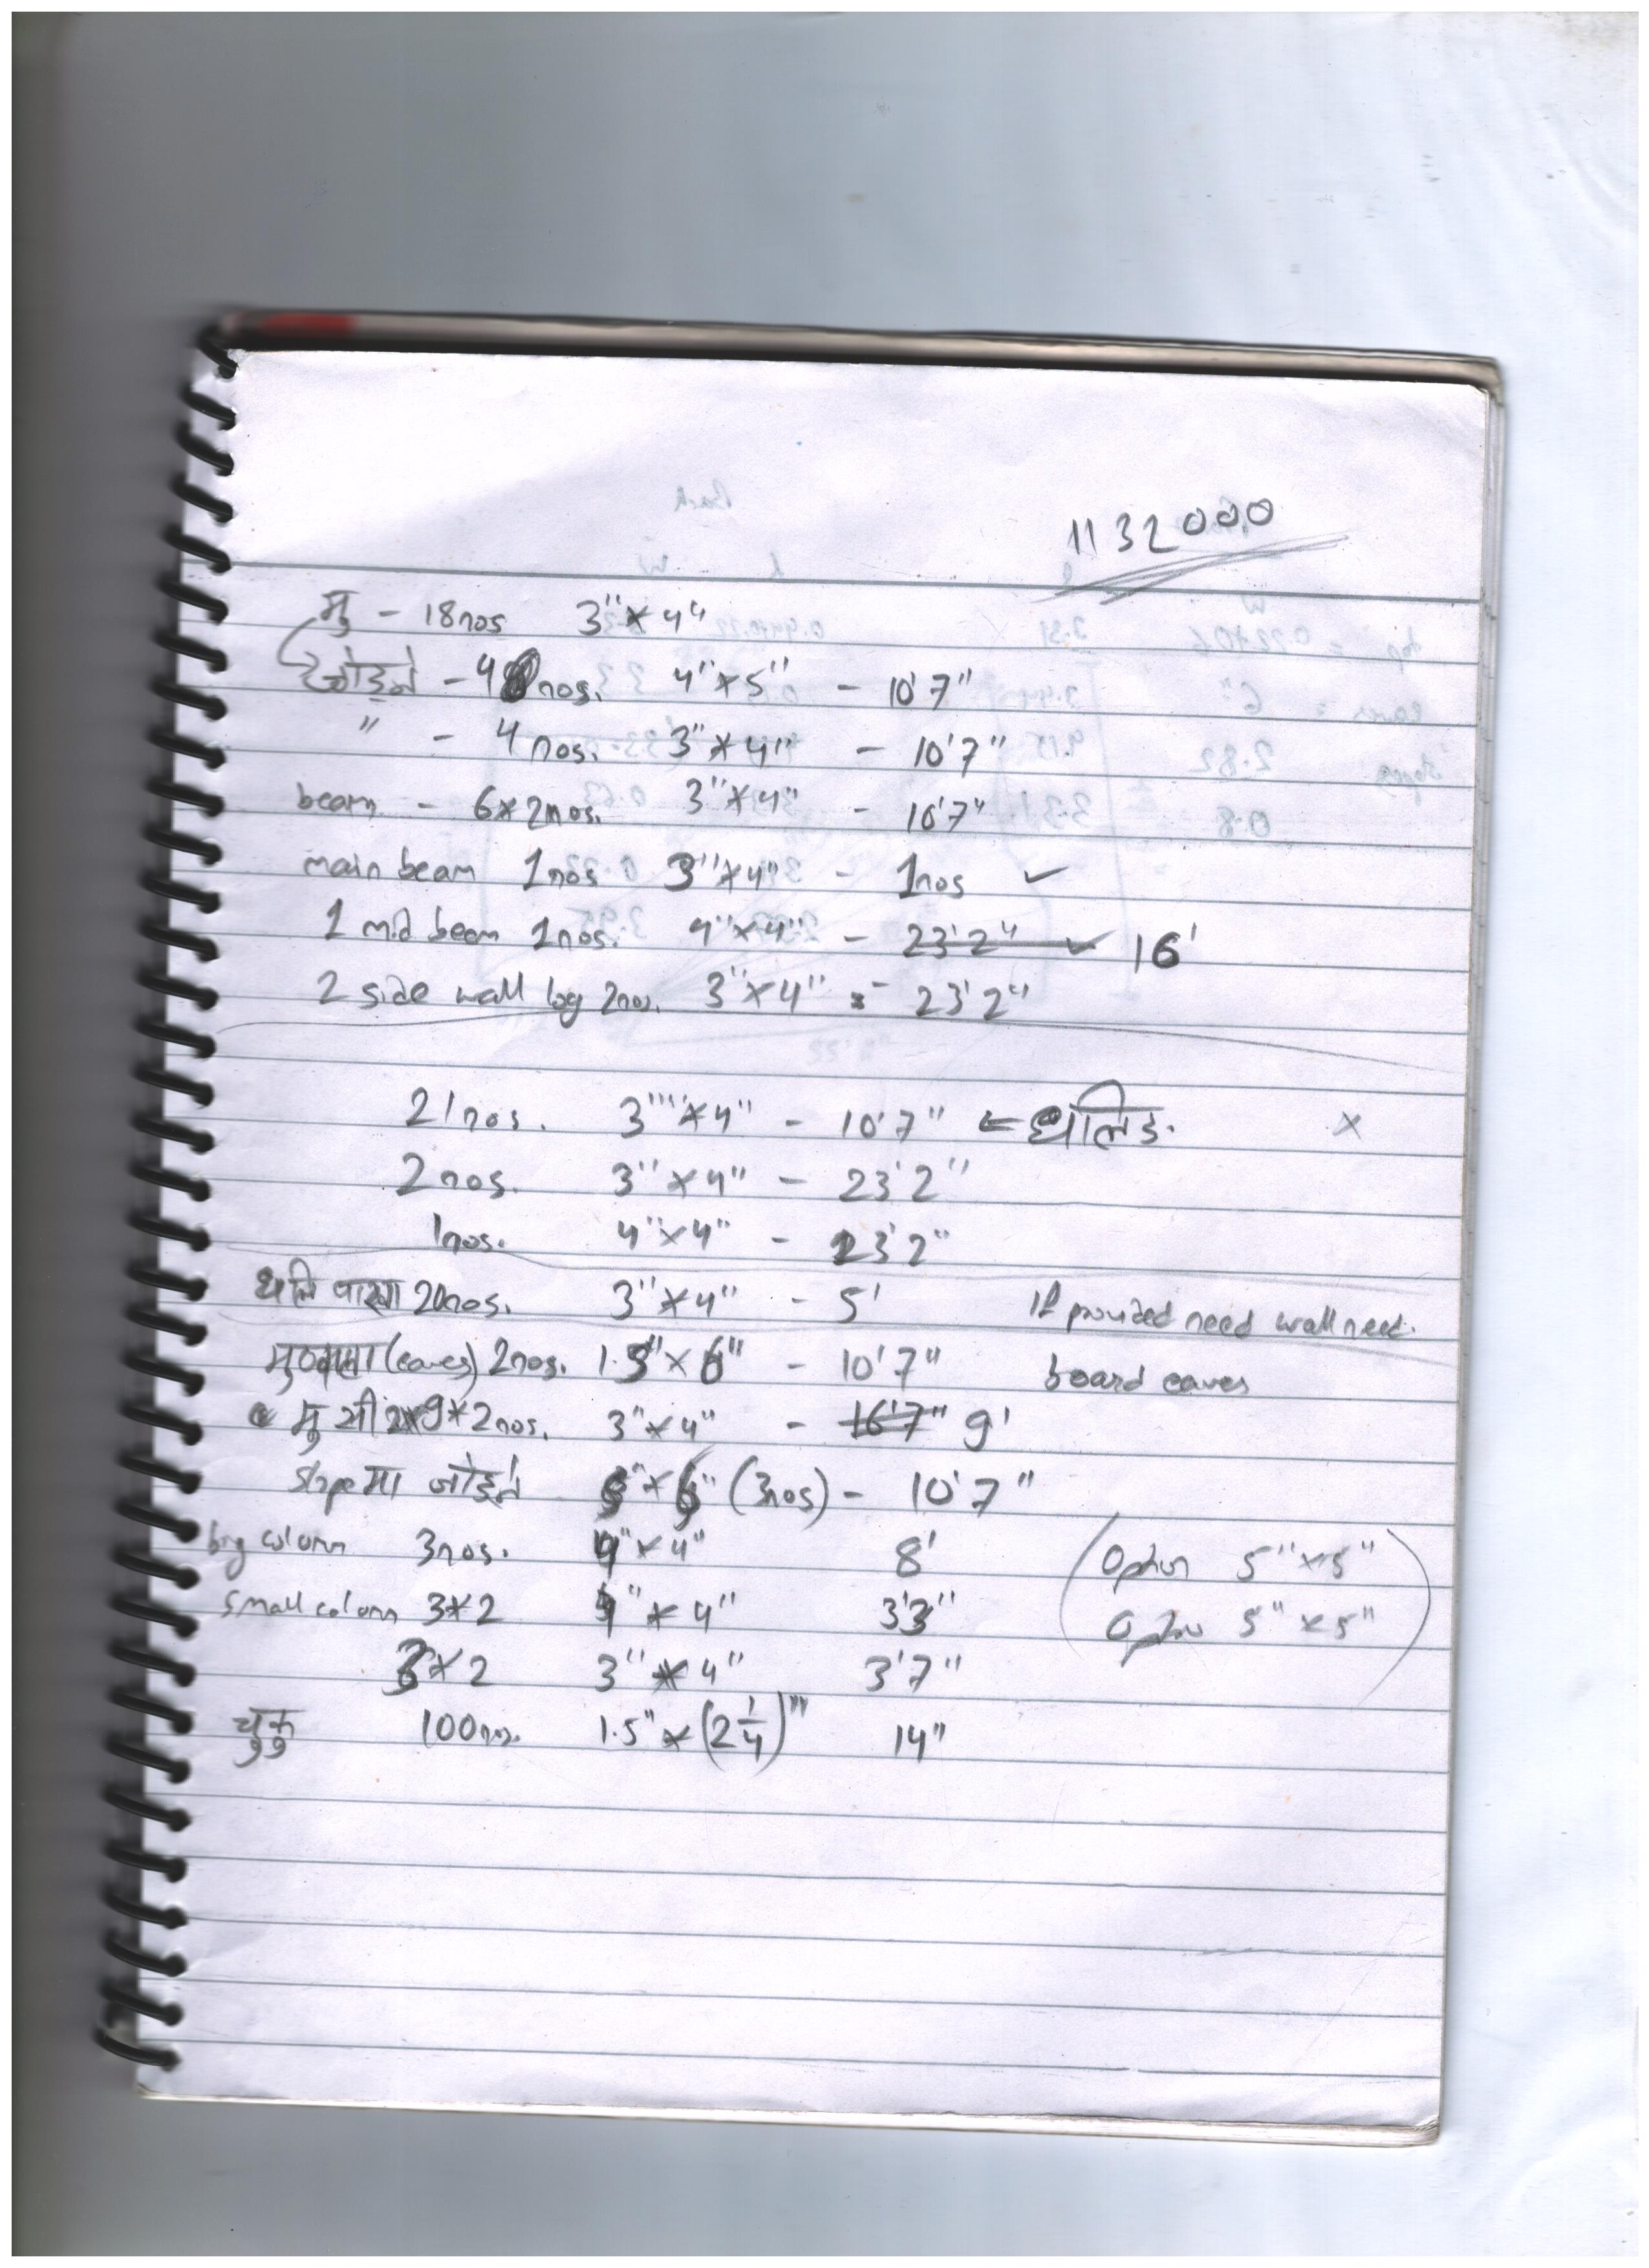 1132000
मु - 18nos 3"×4"
जोड्ने - 4 nos. 4"×5" - 10'7"
" - 4nos. 3"×4" - 10'7"
beam - 6×2nos. 3"×4" - 10'7"
main beam 1nos 3"×4" - 1nos ✓
1 mid beam 1nos. 4"×4" - 23'2" ✓ 16'
2 side wall log 2nos. 3"×4" - 23'2"
21nos. 3""×4" - 10'7" ← धलिङ. ×
2nos. 3"×4" - 23'2"
1nos. 4"×4" - 23'2"
धलि पाखा 20nos. 3"×4" - 5' If provided need wall need.
(eaves) 2nos. 1.5"×6" - 10'7" board eaves
मु 9×2nos. 3"×4" - 16'7" 9'
slopeमा जोड्ने (3nos) - 10'7"
big column 3nos. 4"×4" 8' (Option 5"×5"
small column 3×2 4"×4" 3'3" Option 5"×5")
3×2 3"×4" 3'7"
100nos. 1.5"×(2 1/4)"" 14"